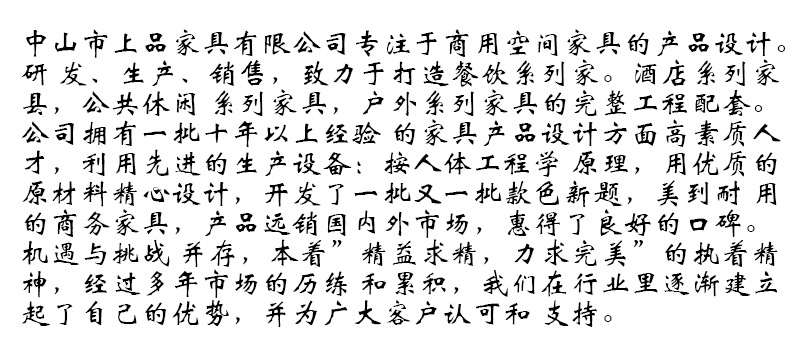 中山市上品家具有限公司专注于商用空间家具的产品设计。
研 发、生产、销售，致力于打造餐饮系列家。酒店系列家
县，公共休闲 系列家具，户外系列家具的完整工程配套。
公司拥有一批十年以上经验 的家具产品设计方面高素质人
才，利用先进的生产设备：按人体工程学 原理，用优质的
原材料精心设计，开发了一批又一批款色新题，美到耐 用
的商务家具，产品远销国内外市场，惠得了良好的口碑。
机遇与挑战 并存，本着”精益求精，力求完美”的执着精
神，经过多年市场的历练 和累积，我们在行业里逐渐建立
起了自己的优势，并为广大客户认可和 支持。